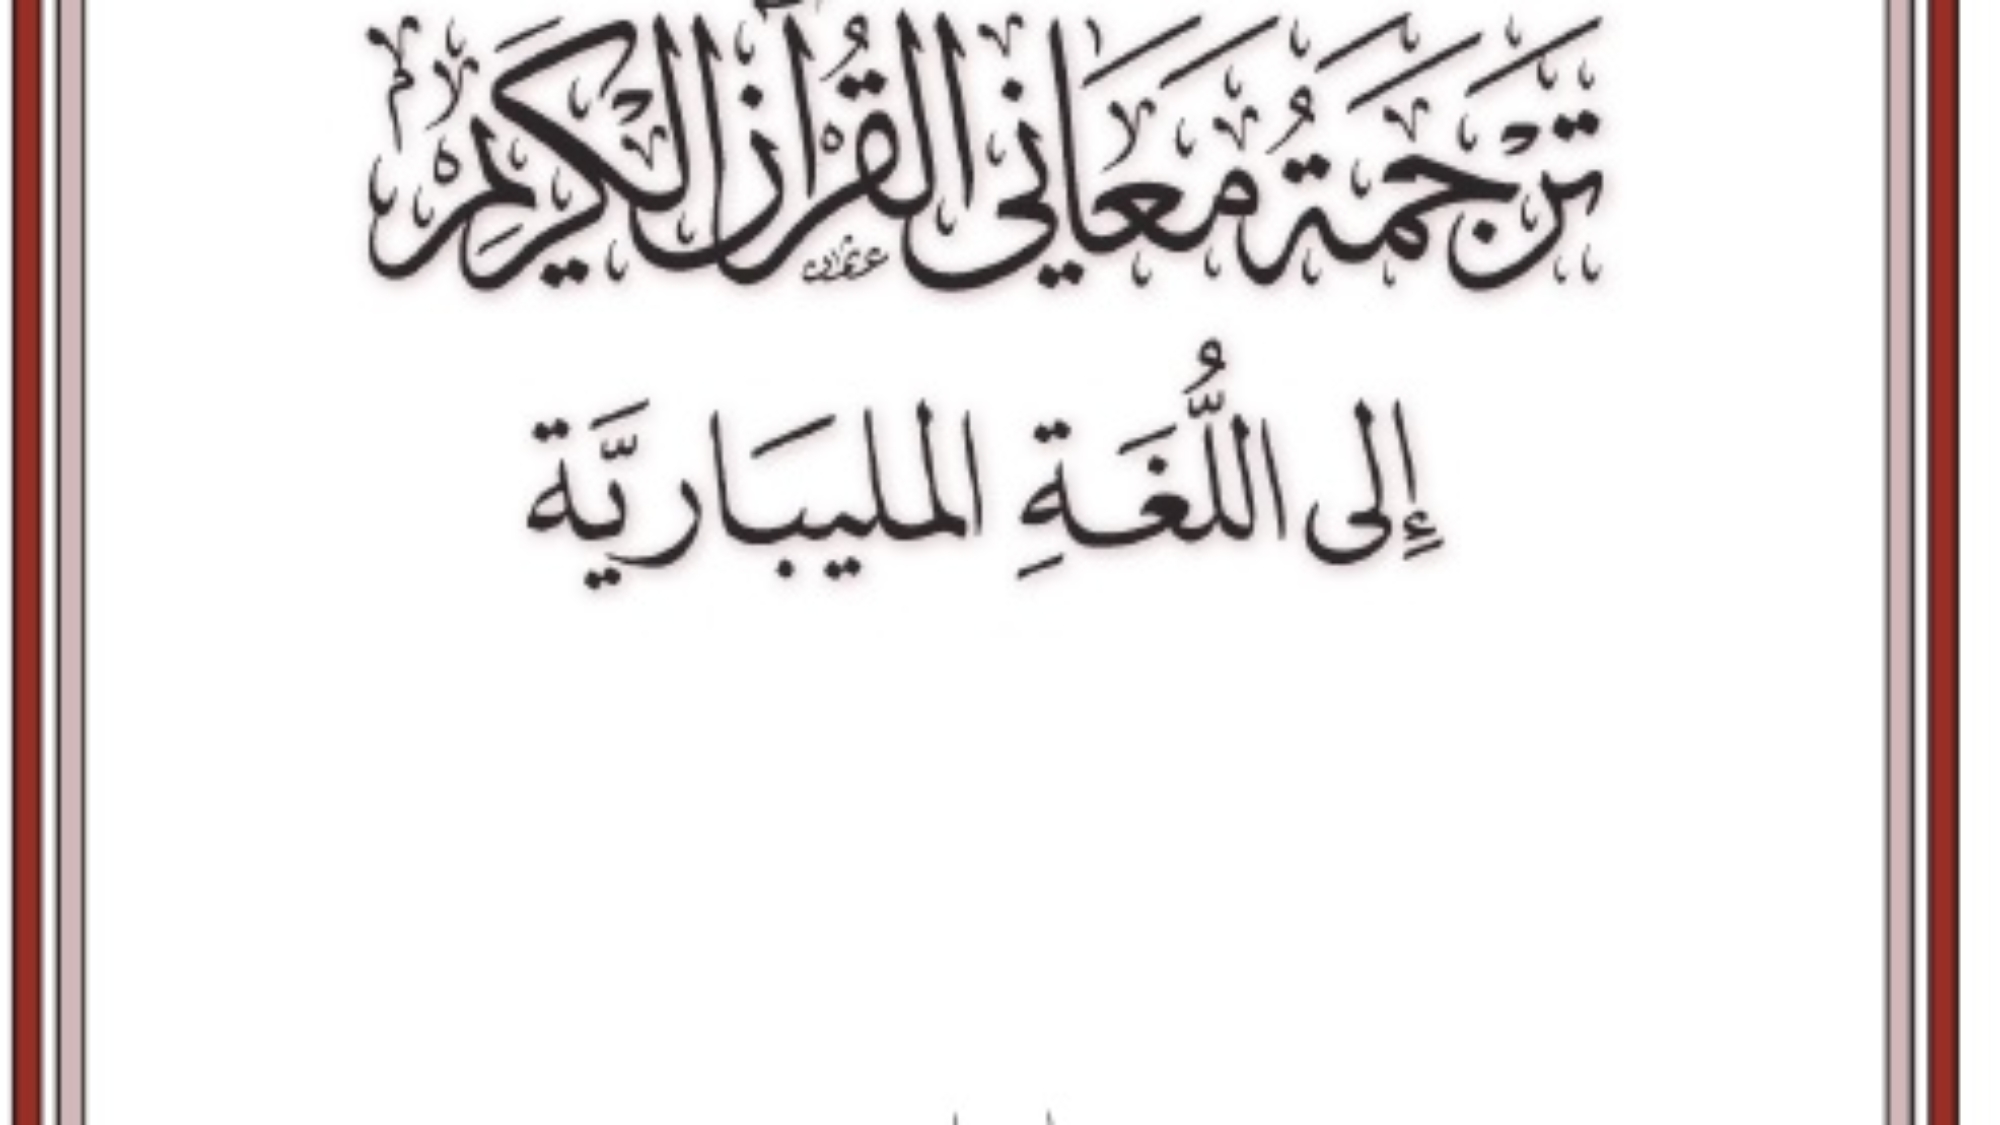 تَرْجَمَةُ مَعَاني القُرْآن الكَرِيمِ
إِلى اللُّغَةِ المليبَاريَّة